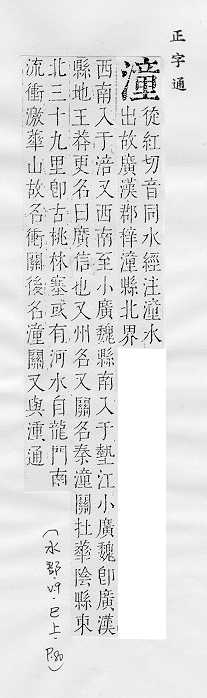 正字通
潼
從紅切音同水經注潼水
出故廣漢郡梓潼縣北界
西南入于涪又西南至小廣魏縣南入于墊江小廣魏卽廣漢
縣地王莽更名曰廣信也又州名又關名秦潼關杜蕐陰縣東
北三十九里卽古桃林塞或有河水自龍門南
流衝激蕐山故名衝關後名潼關又與湩通
(水部·巳上·P.80)